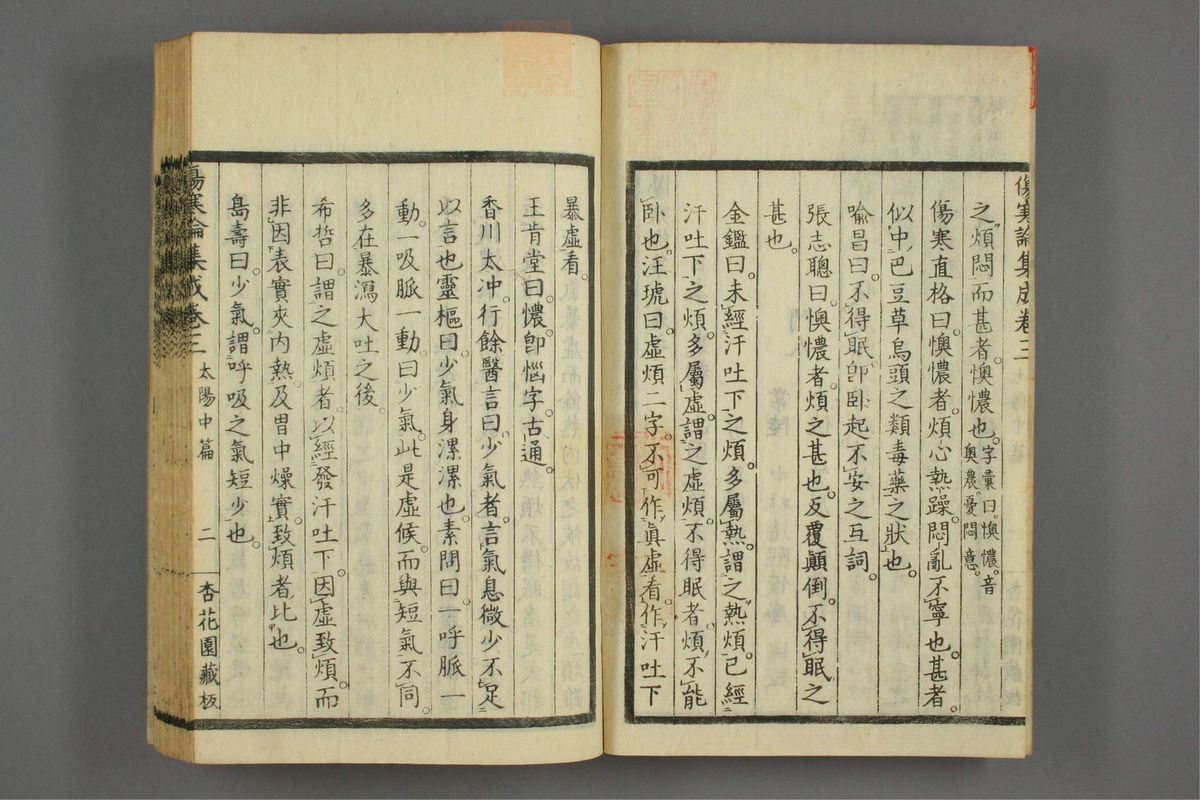 傷寒論集成卷三
之煩悶而甚者。懊憹也。字彙曰。懊憹。音奧農。憂悶意。
傷寒直格曰。懊憹者。煩心熱躁。悶亂不寧也。甚者。
似中巴豆草烏頭之類毒藥之狀也。
喻昌曰。不得眠。卽臥起不安之互詞。
張志聰曰。懊憹者。煩之甚也。反覆顛倒。不得眠之
甚也。
金鑑曰。未經汗吐下之煩。多屬熱。謂之熱煩。已經
汗吐下之煩。多屬虛。謂之虛煩。不得眠者。煩不能
臥也。汪琥曰。虛煩二字。不可作眞虛看。作汗吐下
暴虛看。
王肯堂曰。憹。卽惱字。古通。
香川太冲。行餘醫言曰。少氣者。言氣息微少不足
以言也。靈樞曰。少氣身漯漯也。素問曰。一呼脈一
動。一吸脈一動。曰少氣。此是虛候。而與短氣不同。
多在暴瀉大吐之後。
希哲曰。謂之虛煩者。以經發汗吐下。因虛致煩。而
非因表實夾內熱。及胃中燥實。致煩者比也。
島壽曰。少氣。謂呼吸之氣短少也。
傷寒論集成卷三 太陽中篇 二 杏花園藏板